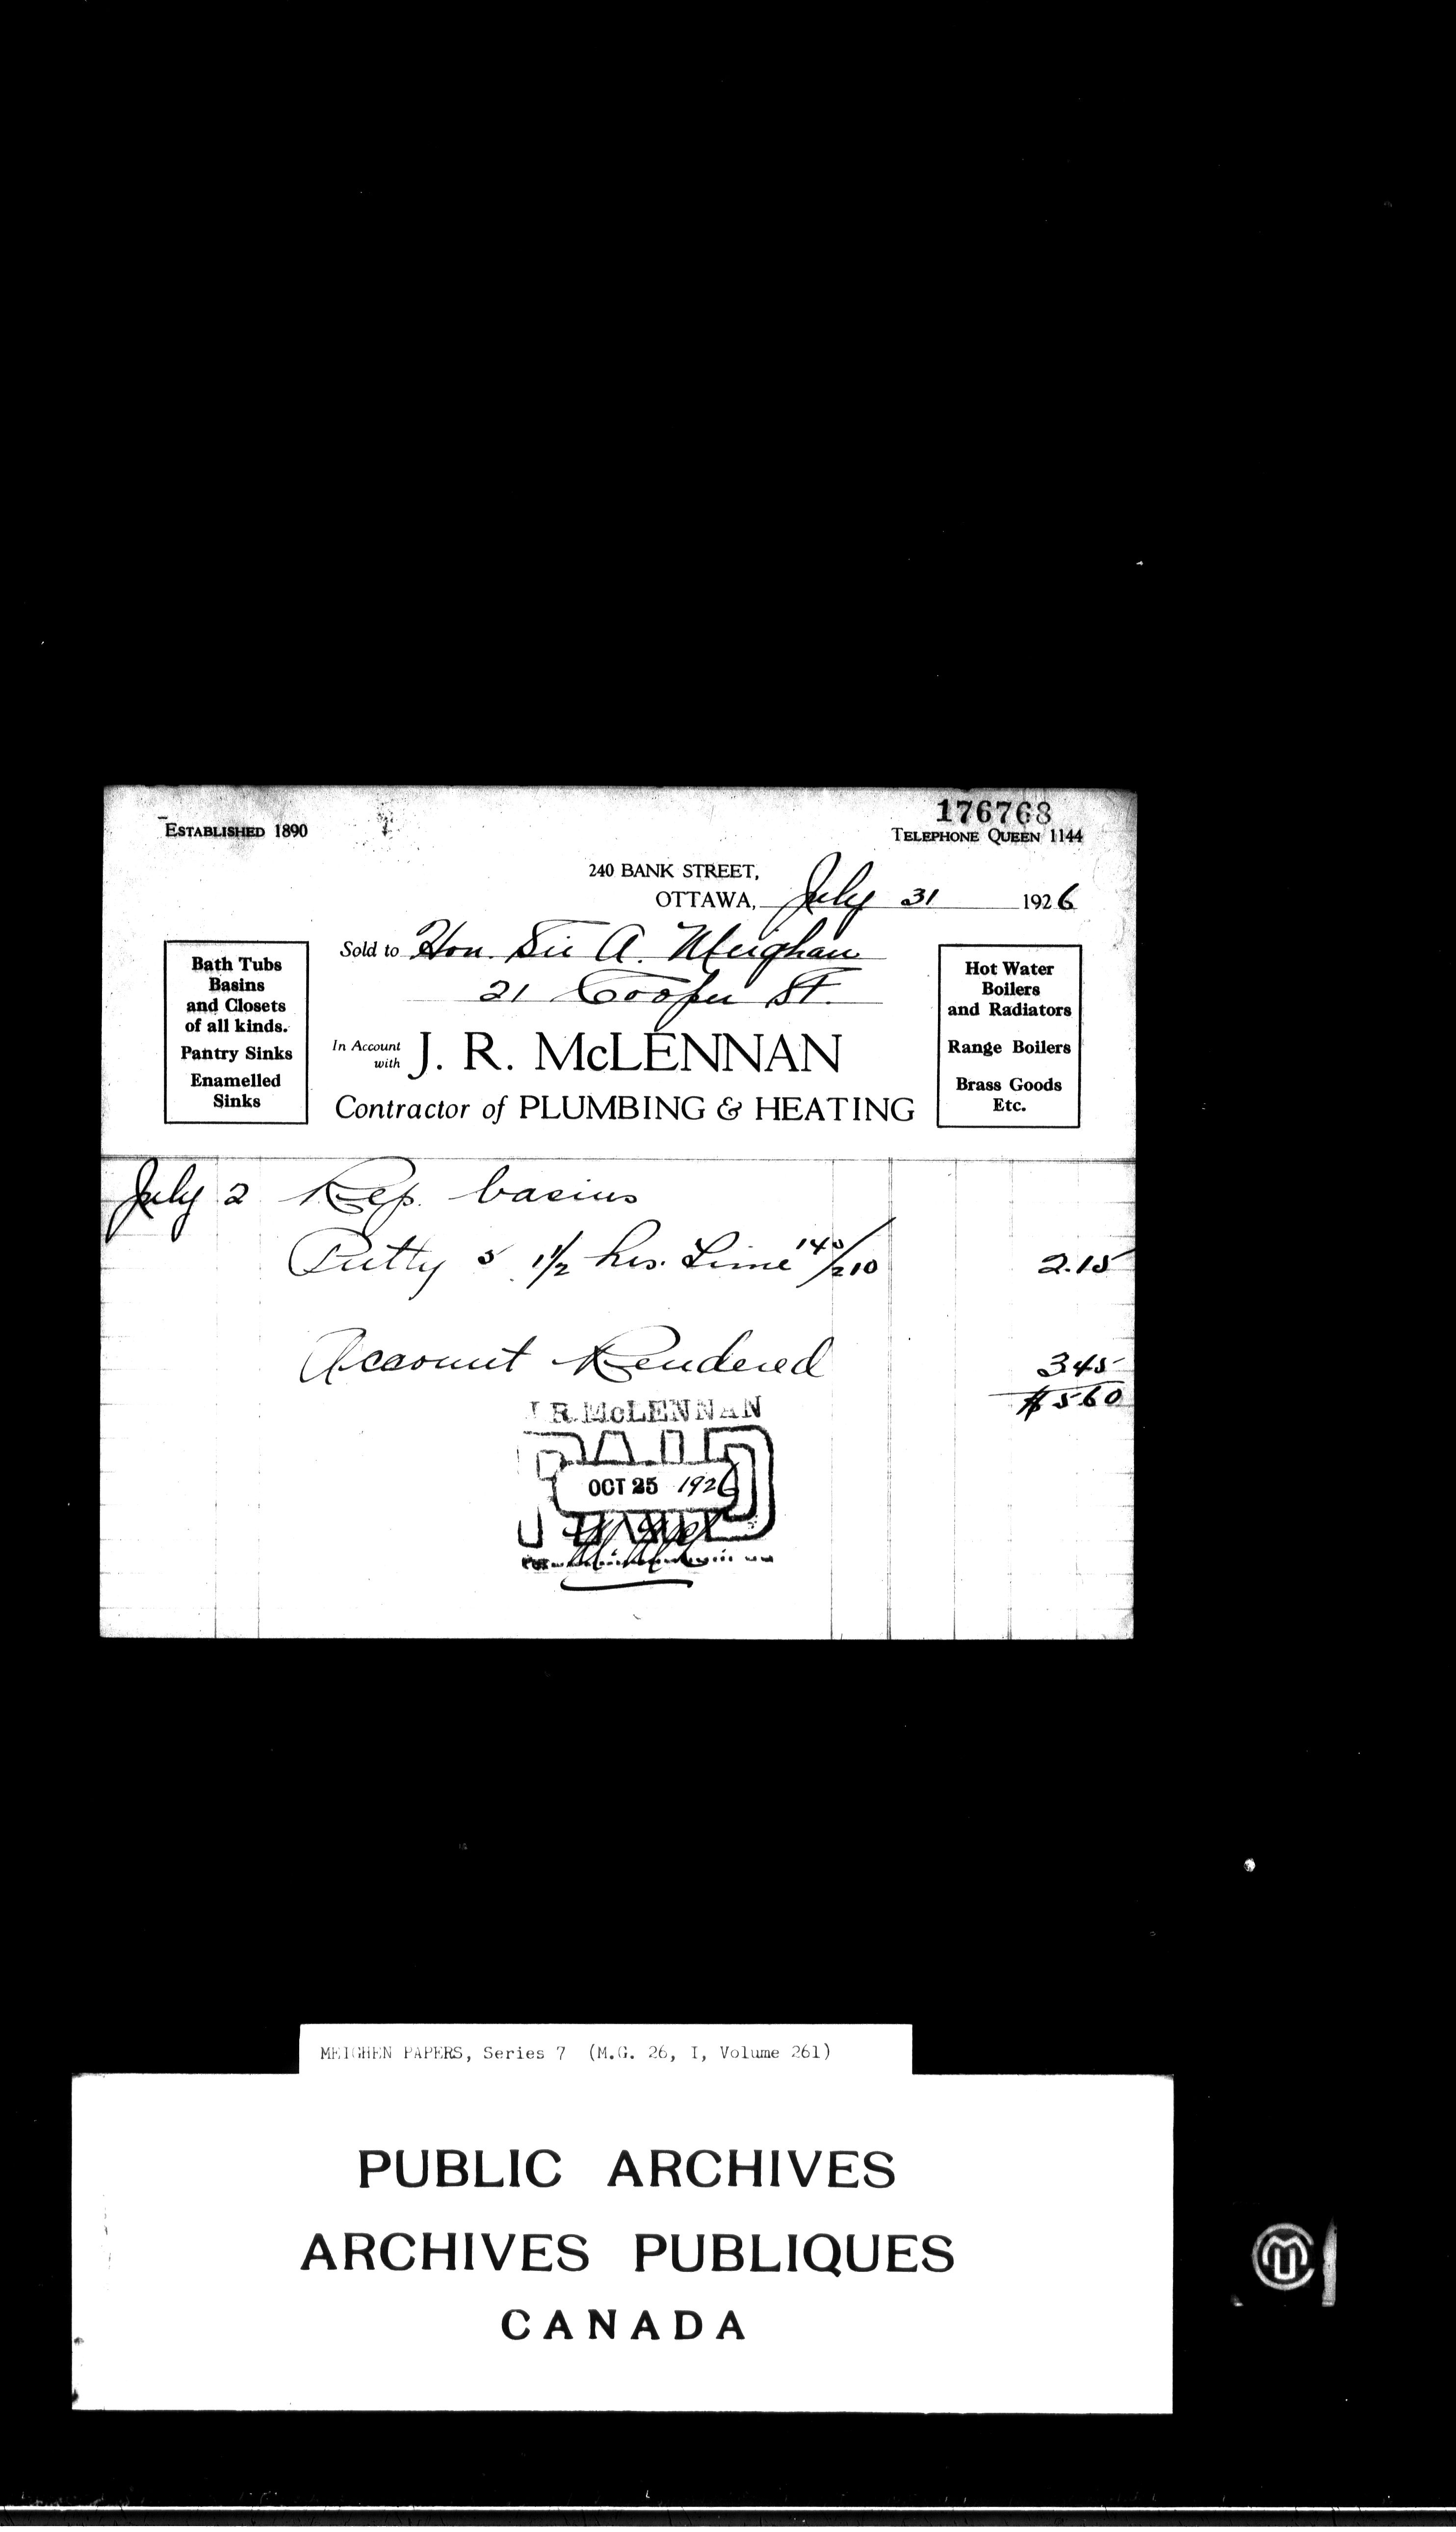 176768
ESTABLISHED 1890
TELEPHONE QUEEN 1144
240 BANK STREET,
OTTAWA, July 31 1926
Sold to Hon. Sir A. Meighan
21 Cooper St.
Bath Tubs
Basins
and Closets
of all kinds.
Pantry Sinks
Enamelled
Sinks
In Account with J. R. McLENNAN
Contractor of PLUMBING & HEATING
Hot Water
Boilers
and Radiators
Range Boilers
Brass Goods
Etc.
July 2 Rep. basins
Putty 5 1½ hrs. Time 140/210 2.15
Account Rendered 3.45
$ 5.60
J. R. McLENNAN
PAID
OCT 25 1926
Per
MEIGHEN PAPERS, Series 7 (M.G. 26, I, Volume 261)
PUBLIC ARCHIVES
ARCHIVES PUBLIQUES
CANADA